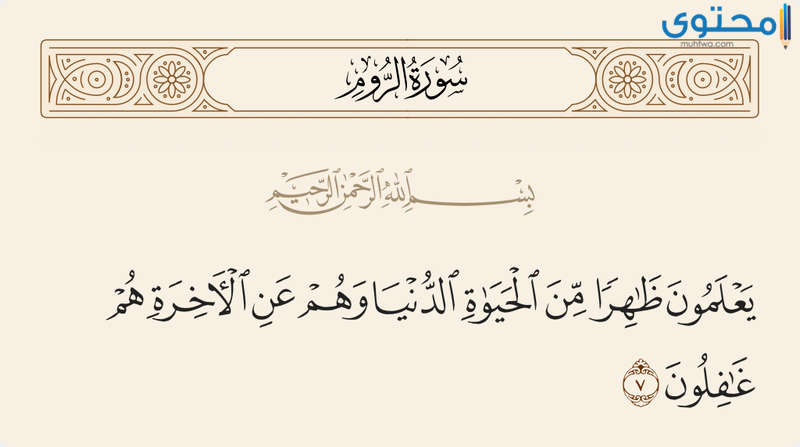 محتوى
muhtwa.com
سُورَةُ الرُّومِ
بِسْمِ ٱللَّهِ ٱلرَّحْمَٰنِ ٱلرَّحِيمِ
يَعْلَمُونَ ظَٰهِرًا مِّنَ ٱلْحَيَوٰةِ ٱلدُّنْيَا وَهُمْ عَنِ ٱلْءَاخِرَةِ هُمْ
غَٰفِلُونَ ٧